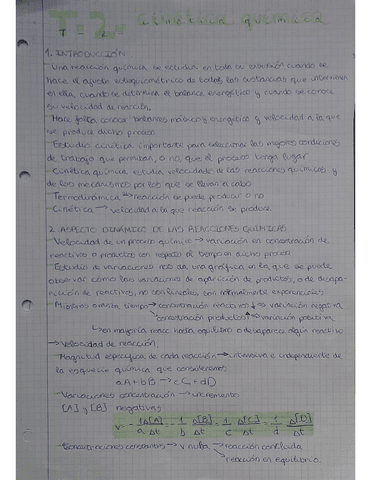 T=2. cinética química
1. INTRODUCCIÓN
- Una reacción química se estudia en toda su extensión cuando se
hace el ajuste estequiométrico de todas las sustancias que intervienen
en ella, cuando se determina el balance energético y cuando se conoce
su velocidad de reacción.
- Hace falta conocer balances másicos y energéticos y velocidad a la que
se produce dicho proceso
- Estudio cinética importante para seleccionar las mejores condiciones
de trabajo que permitan, o no, que el proceso tenga lugar
- Cinética química estudia velocidades de las reacciones químicas y
de los mecanismos por los que se llevan a cabo
- Termodinámica → reacción se puede producir o no
- Cinética → velocidad a la que reacción se produce
2. ASPECTO DINÁMICO DE LAS REACCIONES QUÍMICAS
- Velocidad de un proceso químico → variación en concentración de
reactivos o productos con respecto al tiempo en dicho proceso
- Estudio de variaciones nos da una gráfica en la que se puede
observar cómo las variaciones de aparición de productos, o de desapa-
rición de reactivos, no son lineales, son exponenciales
- Mientras tiempo → concentración reactivos ↓ → variación negativa
concentración productos ↑ → variación positiva
→ en mayoría reacc. hasta equilibrio o desaparece algún reactivo
→ Velocidad de reacción.
- Magnitud específica de cada reacción → intensiva e independiente de
la especie química que consideremos
aA + bB → cC + dD
- Variaciones concentración → incremento
[A] y [B] negativas
v = - 1/a Δ[A]/Δt = - 1/b Δ[B]/Δt = 1/c Δ[C]/Δt = 1/d Δ[D]/Δt
- Concentraciones constantes → v nula → reacción concluida
→ reacción en equilibrio.